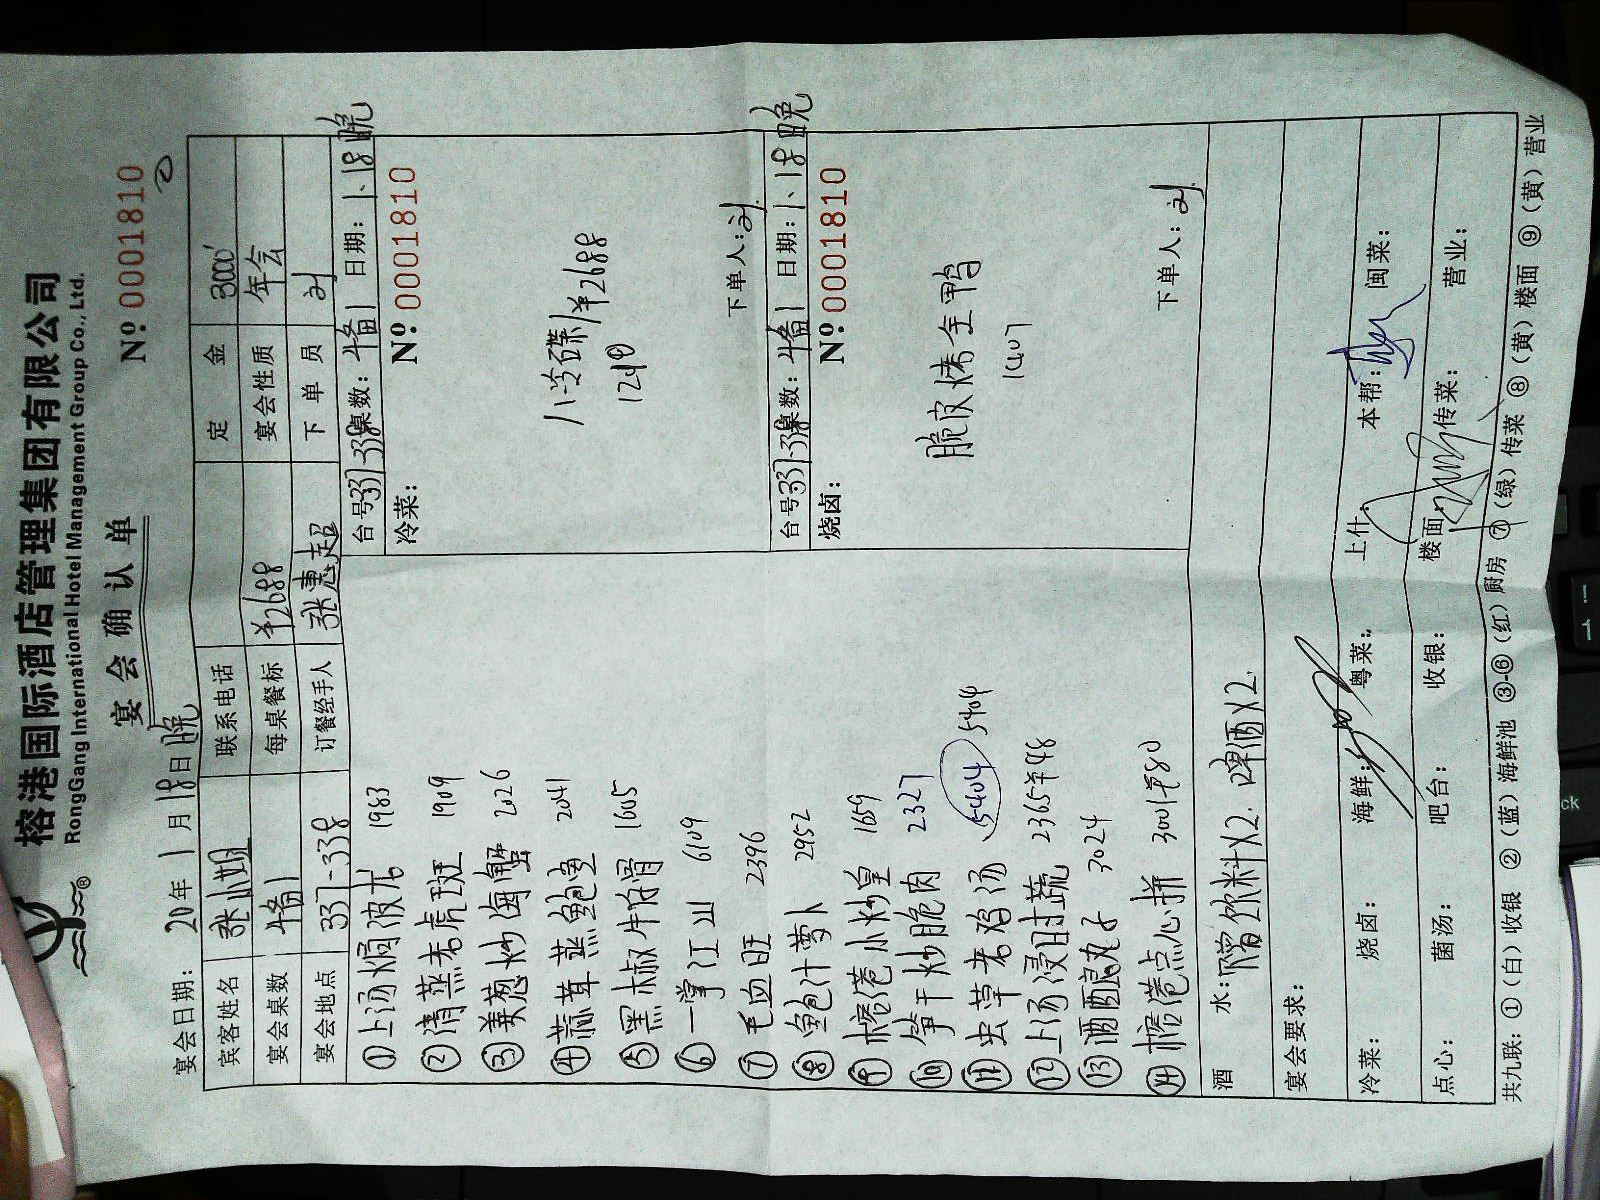 榕港国际酒店管理集团有限公司
RongGang International Hotel Management Group Co., Ltd.
宴会确认单
Nº 0001810
宴会日期: 20 年 1 月 18 日晚
宾客姓名 张小姐 联系电话 定金 3000
宴会桌数 4备1 每桌餐标 ¥2688 宴会性质 年会
宴会地点 337-338 订餐经手人 张惠超 下单员 刘
① 上汤焗波龙 1983
② 清蒸老虎斑 1909
③ 姜葱炒海蟹 2026
④ 蒜茸蒸鲍鱼 2041
⑤ 黑椒牛仔骨 1605
⑥ 一掌江山 6109
⑦ 毛血旺 2396
⑧ 鲍汁萝卜 2952
⑨ 榕港小炒皇 1659
⑩ 笋干炒脆肉 2327
⑪ 虫草老鸡汤 5404 5404
⑫ 上汤浸时蔬 2365 48
⑬ 酒酿丸子 3024
⑭ 榕港点心拼 3001 80
台号 337-338 桌数: 4备1 日期: 1.18晚
冷菜: Nº 0001810
八冷碟/¥2688
下单人: 刘
台号 337-338 桌数: 4备1 日期: 1.18晚
烧卤: Nº 0001810
脆皮烤全鸭
1407
下单人: 刘
酒水: 饮料X2. 啤酒X2.
宴会要求:
冷菜: 烧卤: 海鲜: 粤菜: 上什: 本帮: 闽菜:
点心: 菌汤: 吧台: 收银: 楼面: 传菜: 营业:
共九联: ①(白)收银 ②(蓝)海鲜池 ③-⑥(红)厨房 ⑦(绿)传菜 ⑧(黄)楼面 ⑨(黄)营业